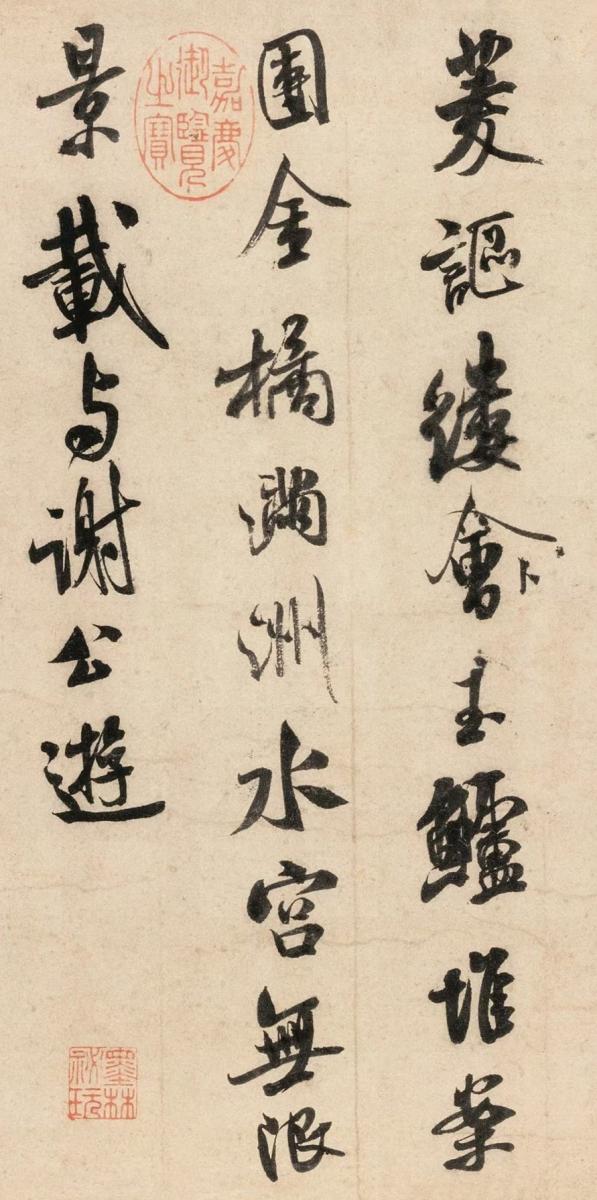 菱謳縷會卜玉鱸堆案
團金橘滿洲水宮無限
景載与謝公遊
嘉慶御覽之寶
墨林祕玩